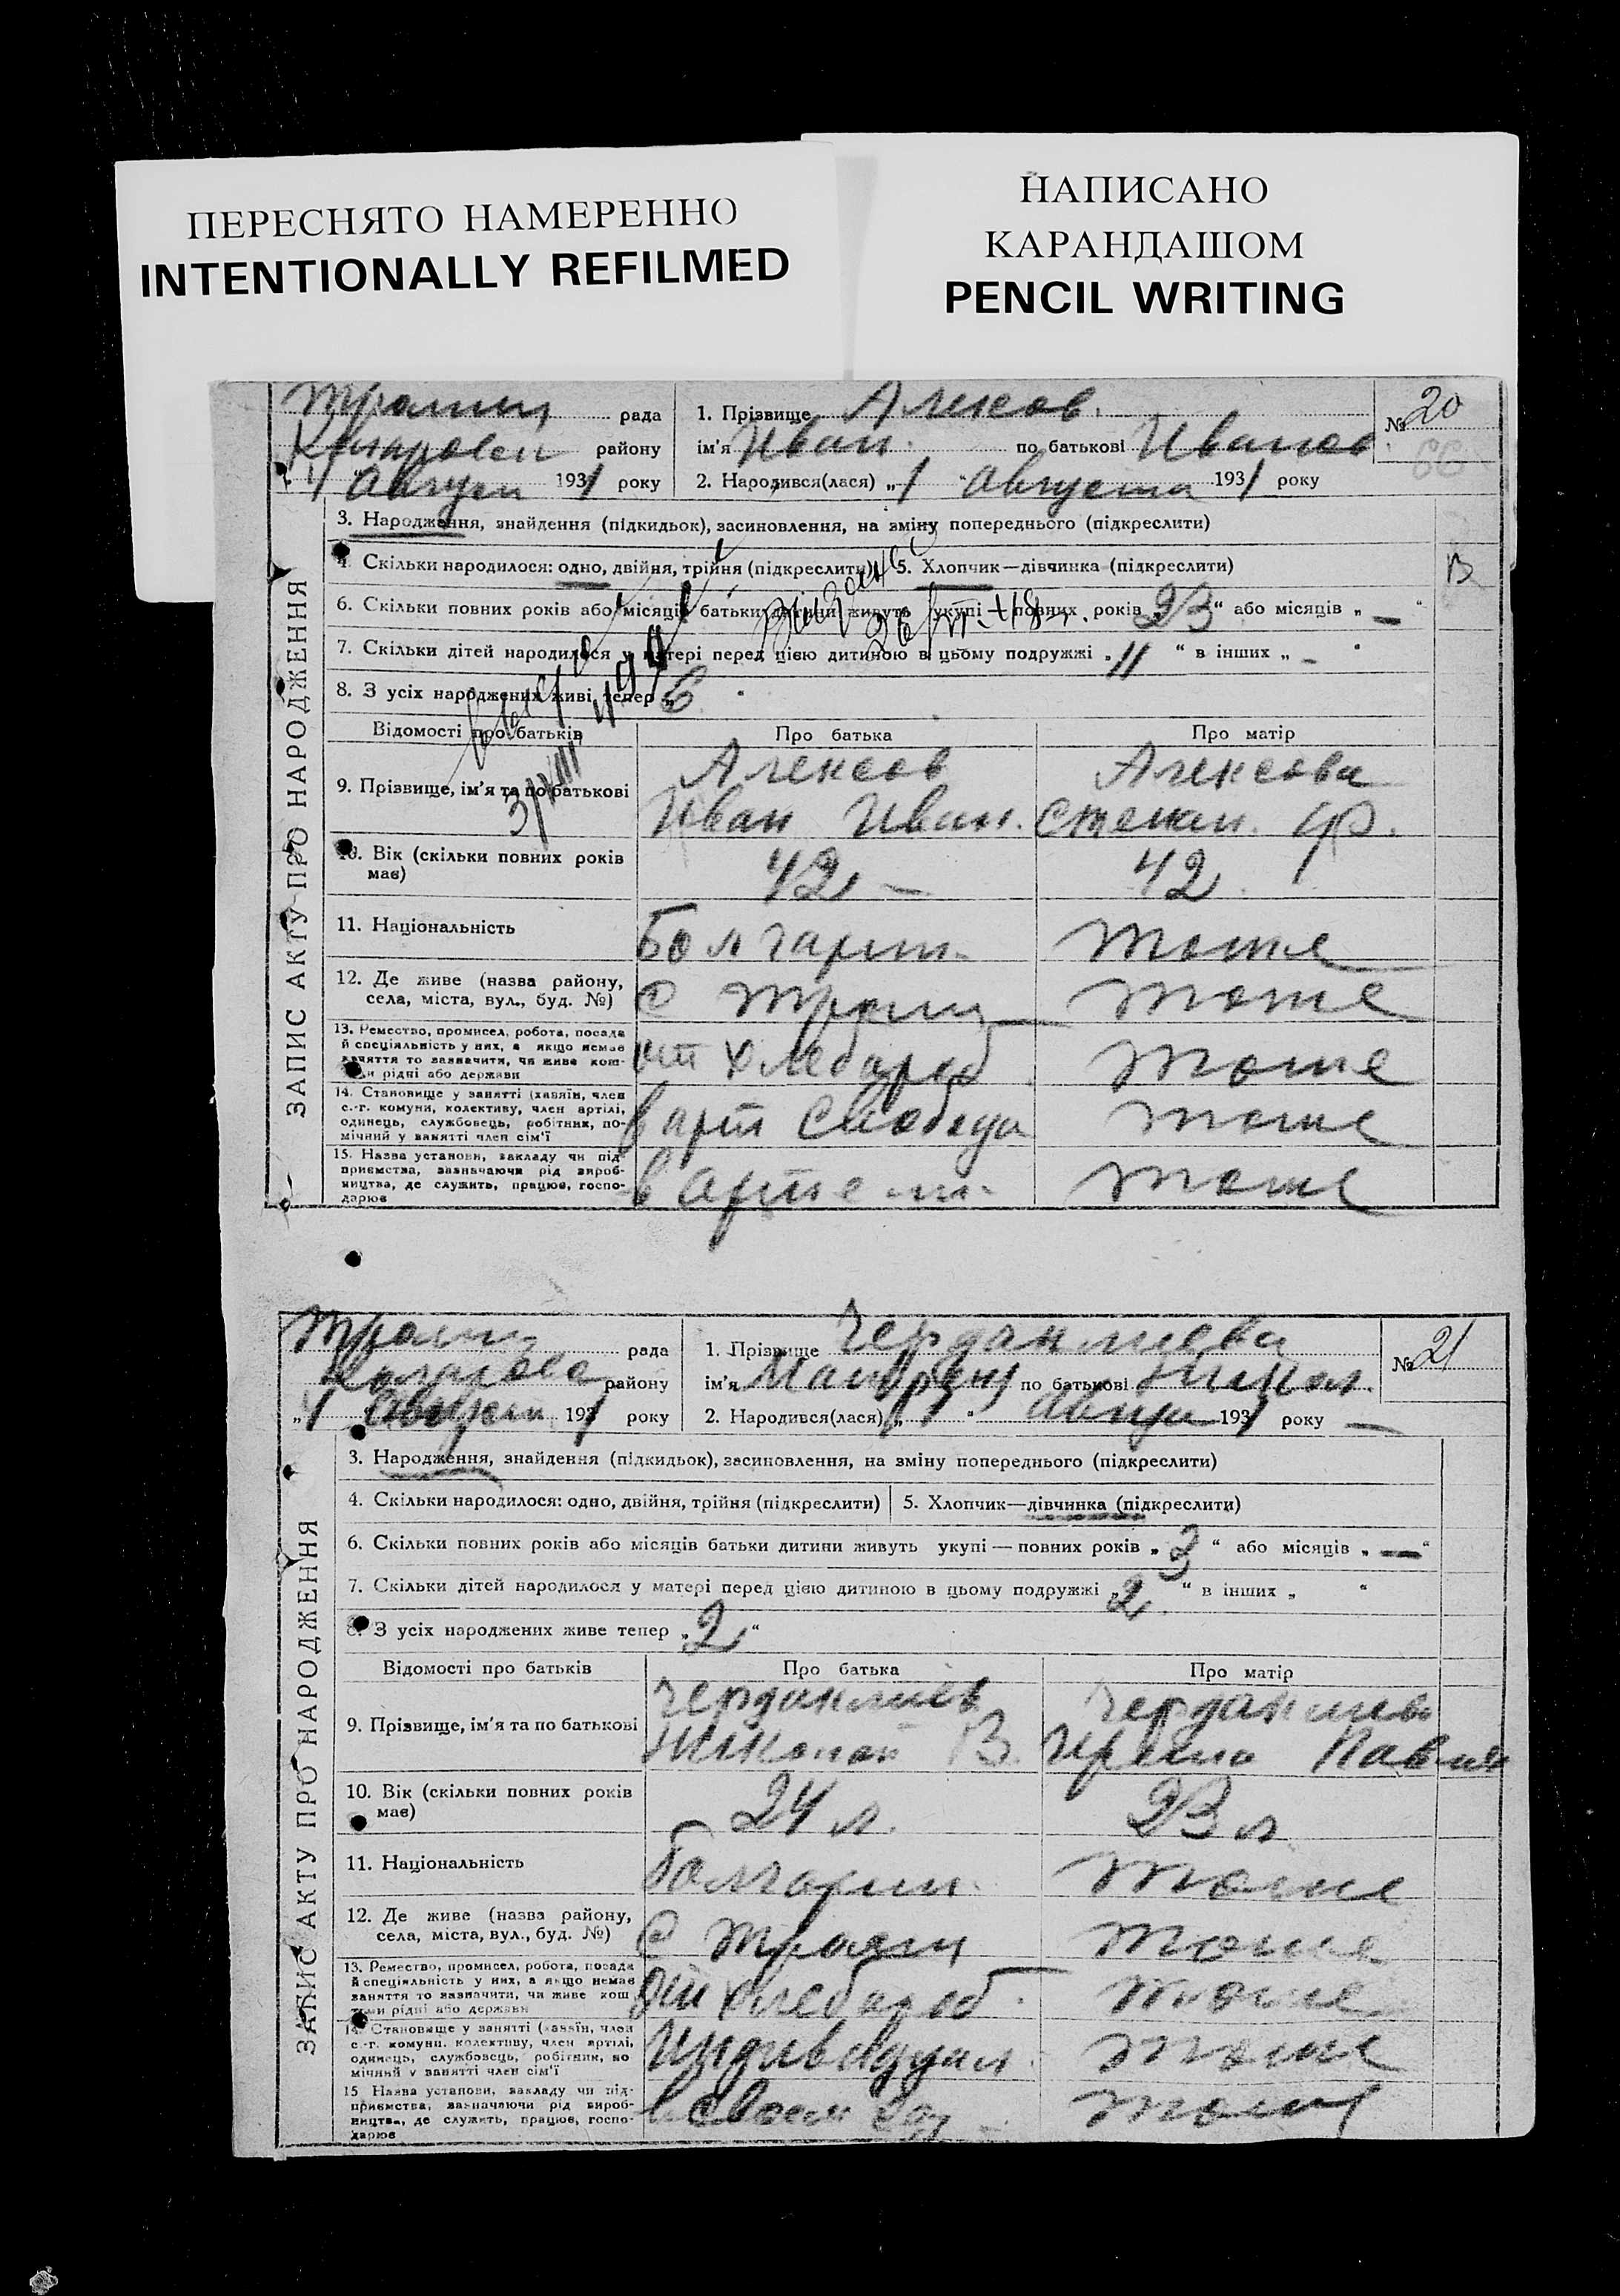 ПЕРЕСНЯТО НАМЕРЕННО
INTENTIONALLY REFILMED
НАПИСАНО
КАРАНДАШОМ
PENCIL WRITING
рада
району
1 Август 1931 року
1. Прізвище Алексов.
ім'я Иван по батькові Иванов.
2. Народився(лася) „1 " Августа 1931 року
№ 20
ЗАПИС АКТУ ПРО НАРОДЖЕННЯ
3. Народження, знайдення (підкидьок), засиновлення, на зміну попереднього (підкреслити)
4. Скільки народилося: одно, двійня, трійня (підкреслити) 5. Хлопчик—дівчинка (підкреслити)
6. Скільки повних років або місяців батьки дитини живуть укупі — повних років „23" або місяців „—"
7. Скільки дітей народилося у матері перед цією дитиною в цьому подружжі „11 " в інших „ – "
8. З усіх народжених живі тепер „6
Відомості про батьків Про батька Про матір
9. Прізвище, ім'я та по батькові
Алексов Алексова
Иван Иван. Степан. Ф.
10. Вік (скільки повних років
має) 42 — 42
11. Національність Болгарин. тоже
12. Де живе (назва району,
села, міста, вул., буд. №) с Троян тоже
13. Ремество, промисел, робота, посада
й спеціяльність у них, а якщо немає
заняття то зазначити, чи живе кош-
тами рідні або держави
хлебороб тоже
14. Становище у занятті (хазяїн, член
с.-г. комуни, колективу, член артілі,
одинець, службовець, робітник, по-
мічний у занятті член сім'ї
в арт Свобода тоже
15. Назва установи, закладу чи під-
приємства, зазначаючи рід вироб-
ництва, де служить, працює, госпо-
дарює
в артели тоже
рада
району
1931 року
1. Прізвище Черданлиева
ім'я по батькові Никол.
2. Народився(лася) „ 1 " 1931 року —
№ 21
ЗАПИС АКТУ ПРО НАРОДЖЕННЯ
3. Народження, знайдення (підкидьок), засиновлення, на зміну попереднього (підкреслити)
4. Скільки народилося: одно, двійня, трійня (підкреслити) 5. Хлопчик—дівчинка (підкреслити)
6. Скільки повних років або місяців батьки дитини живуть укупі — повних років „ 3 " або місяців „—"
7. Скільки дітей народилося у матері перед цією дитиною в цьому подружжі „2 " в інших „ "
8. З усіх народжених живе тепер „2"
Відомості про батьків Про батька Про матір
9. Прізвище, ім'я та по батькові
Черданлиев
Николай В.
10. Вік (скільки повних років
має) 24 л. 23 л
11. Національність Болгарин. тоже
12. Де живе (назва району,
села, міста, вул., буд. №) с Троян тоже
13. Ремество, промисел, робота, посада
й спеціяльність у них, а якщо немає
заняття то зазначити, чи живе кош
тами рідні або держави
хлебороб тоже
14. Становище у занятті (хазяїн, член
с.-г. комуни, колективу, член артілі,
одинець, службовець, робітник, по
мічний у занятті член сім'ї
Индивидуал тоже
15 Назва установи, закладу чи під-
приємства, зазначаючи рід вироб-
ництва, де служить, працює, госпо-
дарює
в своем хоз — тоже